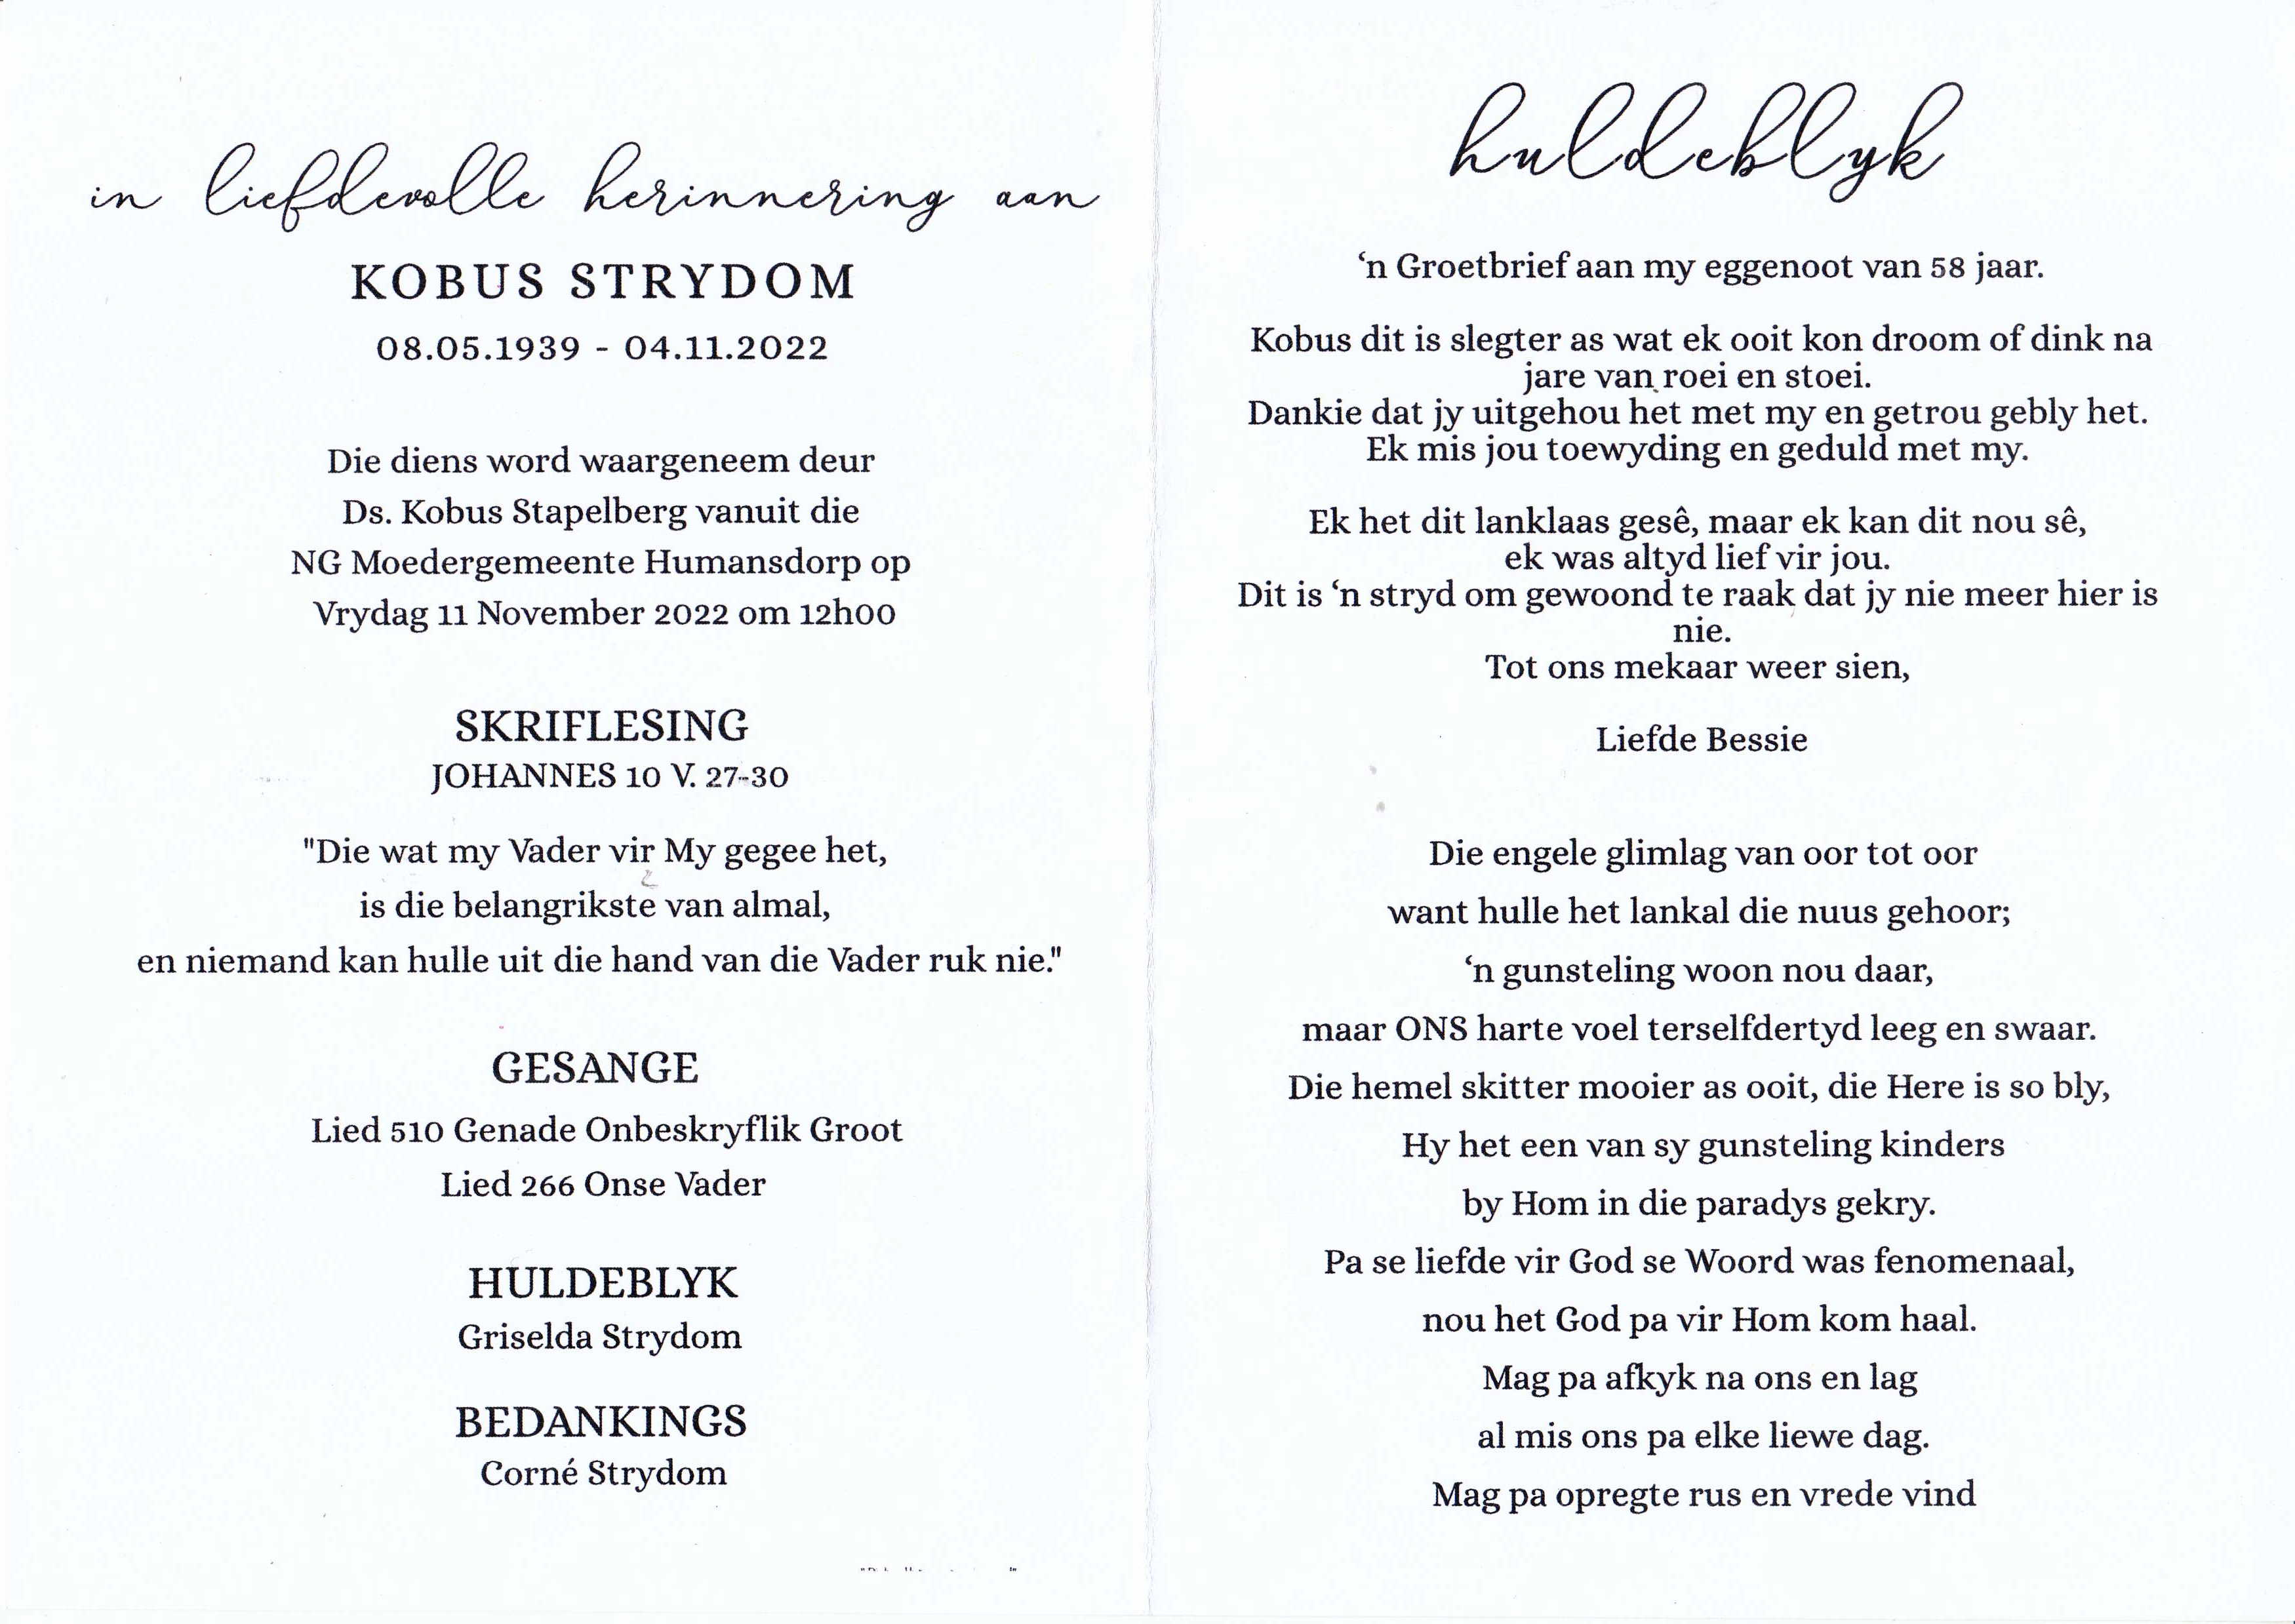 in liefdevolle herinnering aan
KOBUS STRYDOM
08.05.1939 - 04.11.2022
Die diens word waargeneem deur
Ds. Kobus Stapelberg vanuit die
NG Moedergemeente Humansdorp op
Vrydag 11 November 2022 om 12h00
SKRIFLESING
JOHANNES 10 V. 27-30
"Die wat my Vader vir My gegee het,
is die belangrikste van almal,
en niemand kan hulle uit die hand van die Vader ruk nie."
GESANGE
Lied 510 Genade Onbeskryflik Groot
Lied 266 Onse Vader
HULDEBLYK
Griselda Strydom
BEDANKINGS
Corné Strydom
huldeblyk
‘n Groetbrief aan my eggenoot van 58 jaar.
Kobus dit is slegter as wat ek ooit kon droom of dink na
jare van roei en stoei.
Dankie dat jy uitgehou het met my en getrou gebly het.
Ek mis jou toewyding en geduld met my.
Ek het dit lanklaas gesê, maar ek kan dit nou sê,
ek was altyd lief vir jou.
Dit is ‘n stryd om gewoond te raak dat jy nie meer hier is
nie.
Tot ons mekaar weer sien,
Liefde Bessie
Die engele glimlag van oor tot oor
want hulle het lankal die nuus gehoor;
‘n gunsteling woon nou daar,
maar ONS harte voel terselfdertyd leeg en swaar.
Die hemel skitter mooier as ooit, die Here is so bly,
Hy het een van sy gunsteling kinders
by Hom in die paradys gekry.
Pa se liefde vir God se Woord was fenomenaal,
nou het God pa vir Hom kom haal.
Mag pa afkyk na ons en lag
al mis ons pa elke liewe dag.
Mag pa opregte rus en vrede vind